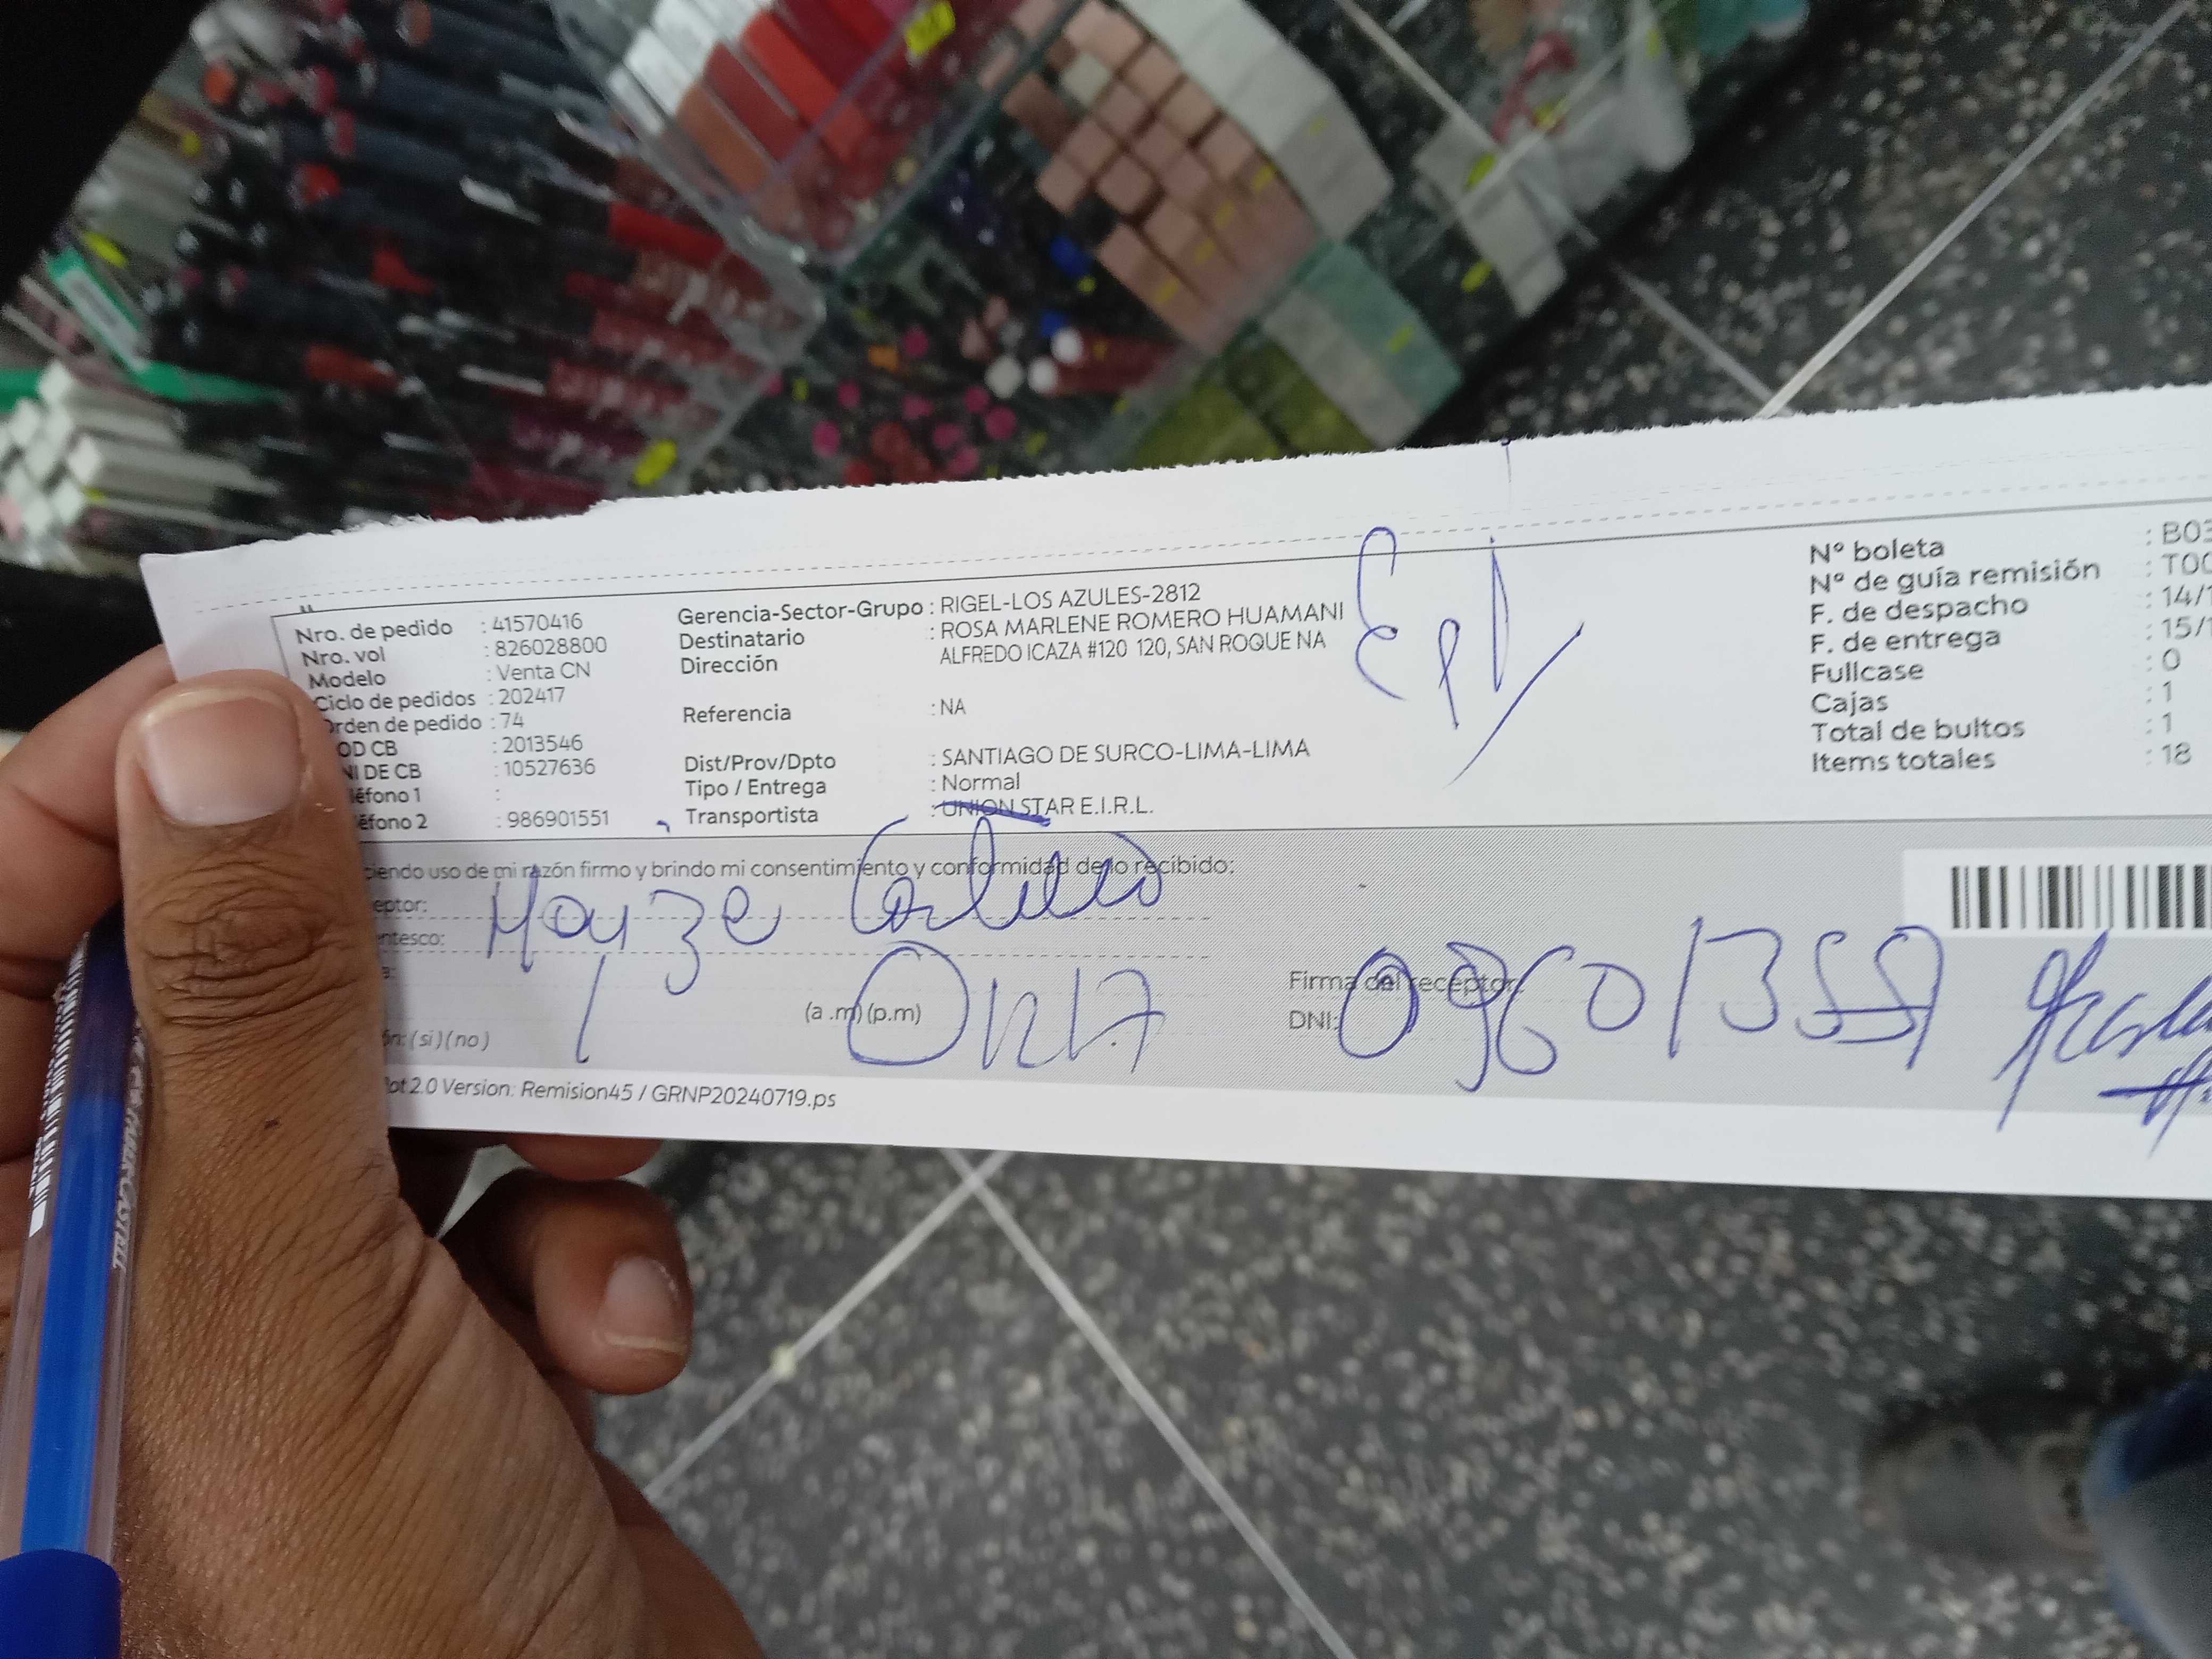 Nro. de pedido : 41570416
Nro. vol : 826028800
Modelo : Venta CN
Ciclo de pedidos : 202417
rden de pedido : 74
OD CB : 2013546
NI DE CB : 10527636
léfono 1 :
éfono 2 : 986901551
Gerencia-Sector-Grupo : RIGEL-LOS AZULES-2812
Destinatario : ROSA MARLENE ROMERO HUAMANI
Dirección ALFREDO ICAZA #120 120, SAN ROQUE NA
Referencia : NA
Dist/Prov/Dpto : SANTIAGO DE SURCO-LIMA-LIMA
Tipo / Entrega : Normal
Transportista : UNION STAR E.I.R.L.
N° boleta : B03
N° de guía remisión : T00
F. de despacho : 14/1
F. de entrega : 15/1
Fullcase : 0
Cajas : 1
Total de bultos : 1
Items totales : 18
iendo uso de mi razón firmo y brindo mi consentimiento y conformidad de lo recibido:
eptor:
ntesco:
a:
(a .m) (p.m)
Firma del receptor:
DNI:
ón: (si) (no)
lot 2.0 Version: Remision45 / GRNP20240719.ps